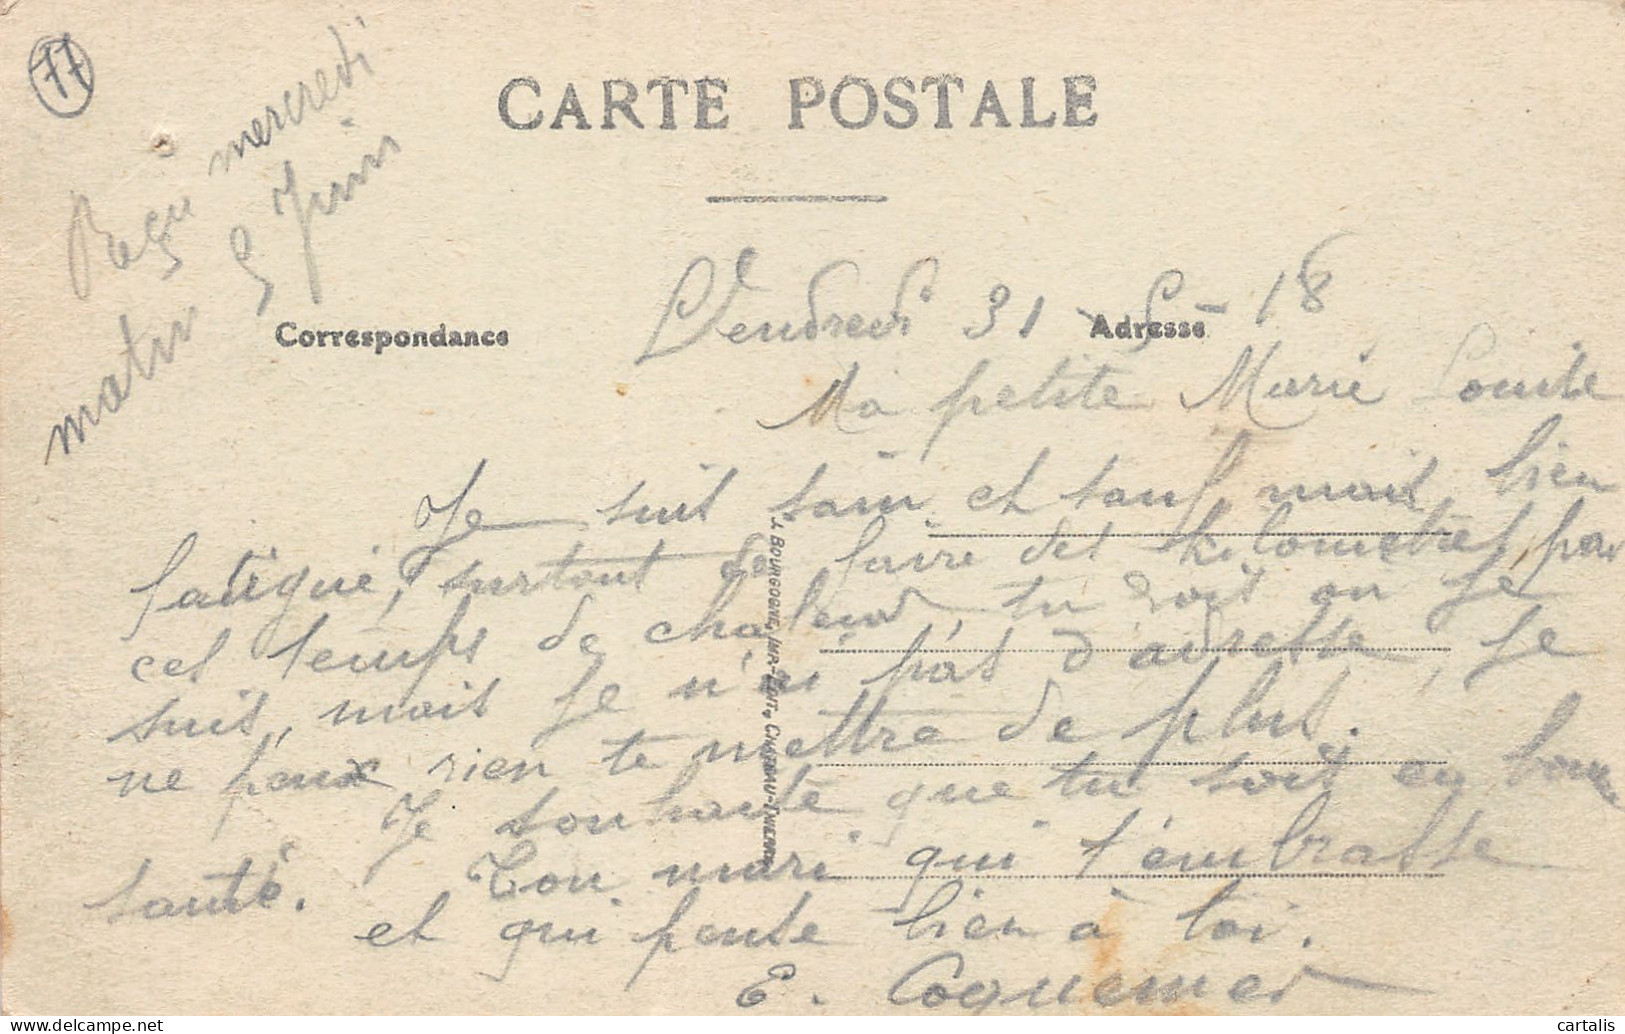 77
CARTE POSTALE
Reçu mercredi
matin 5 Juin
Correspondance
Adresse
Vendredi 31 - 5 - 18
Ma petite Marie Louise
Je suis sain et sauf, mais bien
fatigué, surtout de faire des kilometres par
ces temps de chaleur, tu vois ou Je
suis, mais Je n'ai pas d'adresse, Je
ne peux rien te mettre de plus.
Je souhaite que tu sois en bonne
santé. Ton mari qui t'embrasse
et qui pense bien à toi.
E. Coquemer
J. BOURGOGNE, IMP.-EDIT., CHATEAU-THIERRY
cartalis